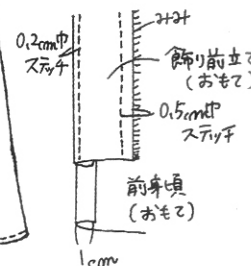 みみ
0.2cm巾
ステッチ
飾り前立て
(おもて)
0.5cm巾
ステッチ
前身頃
(おもて)
1cm